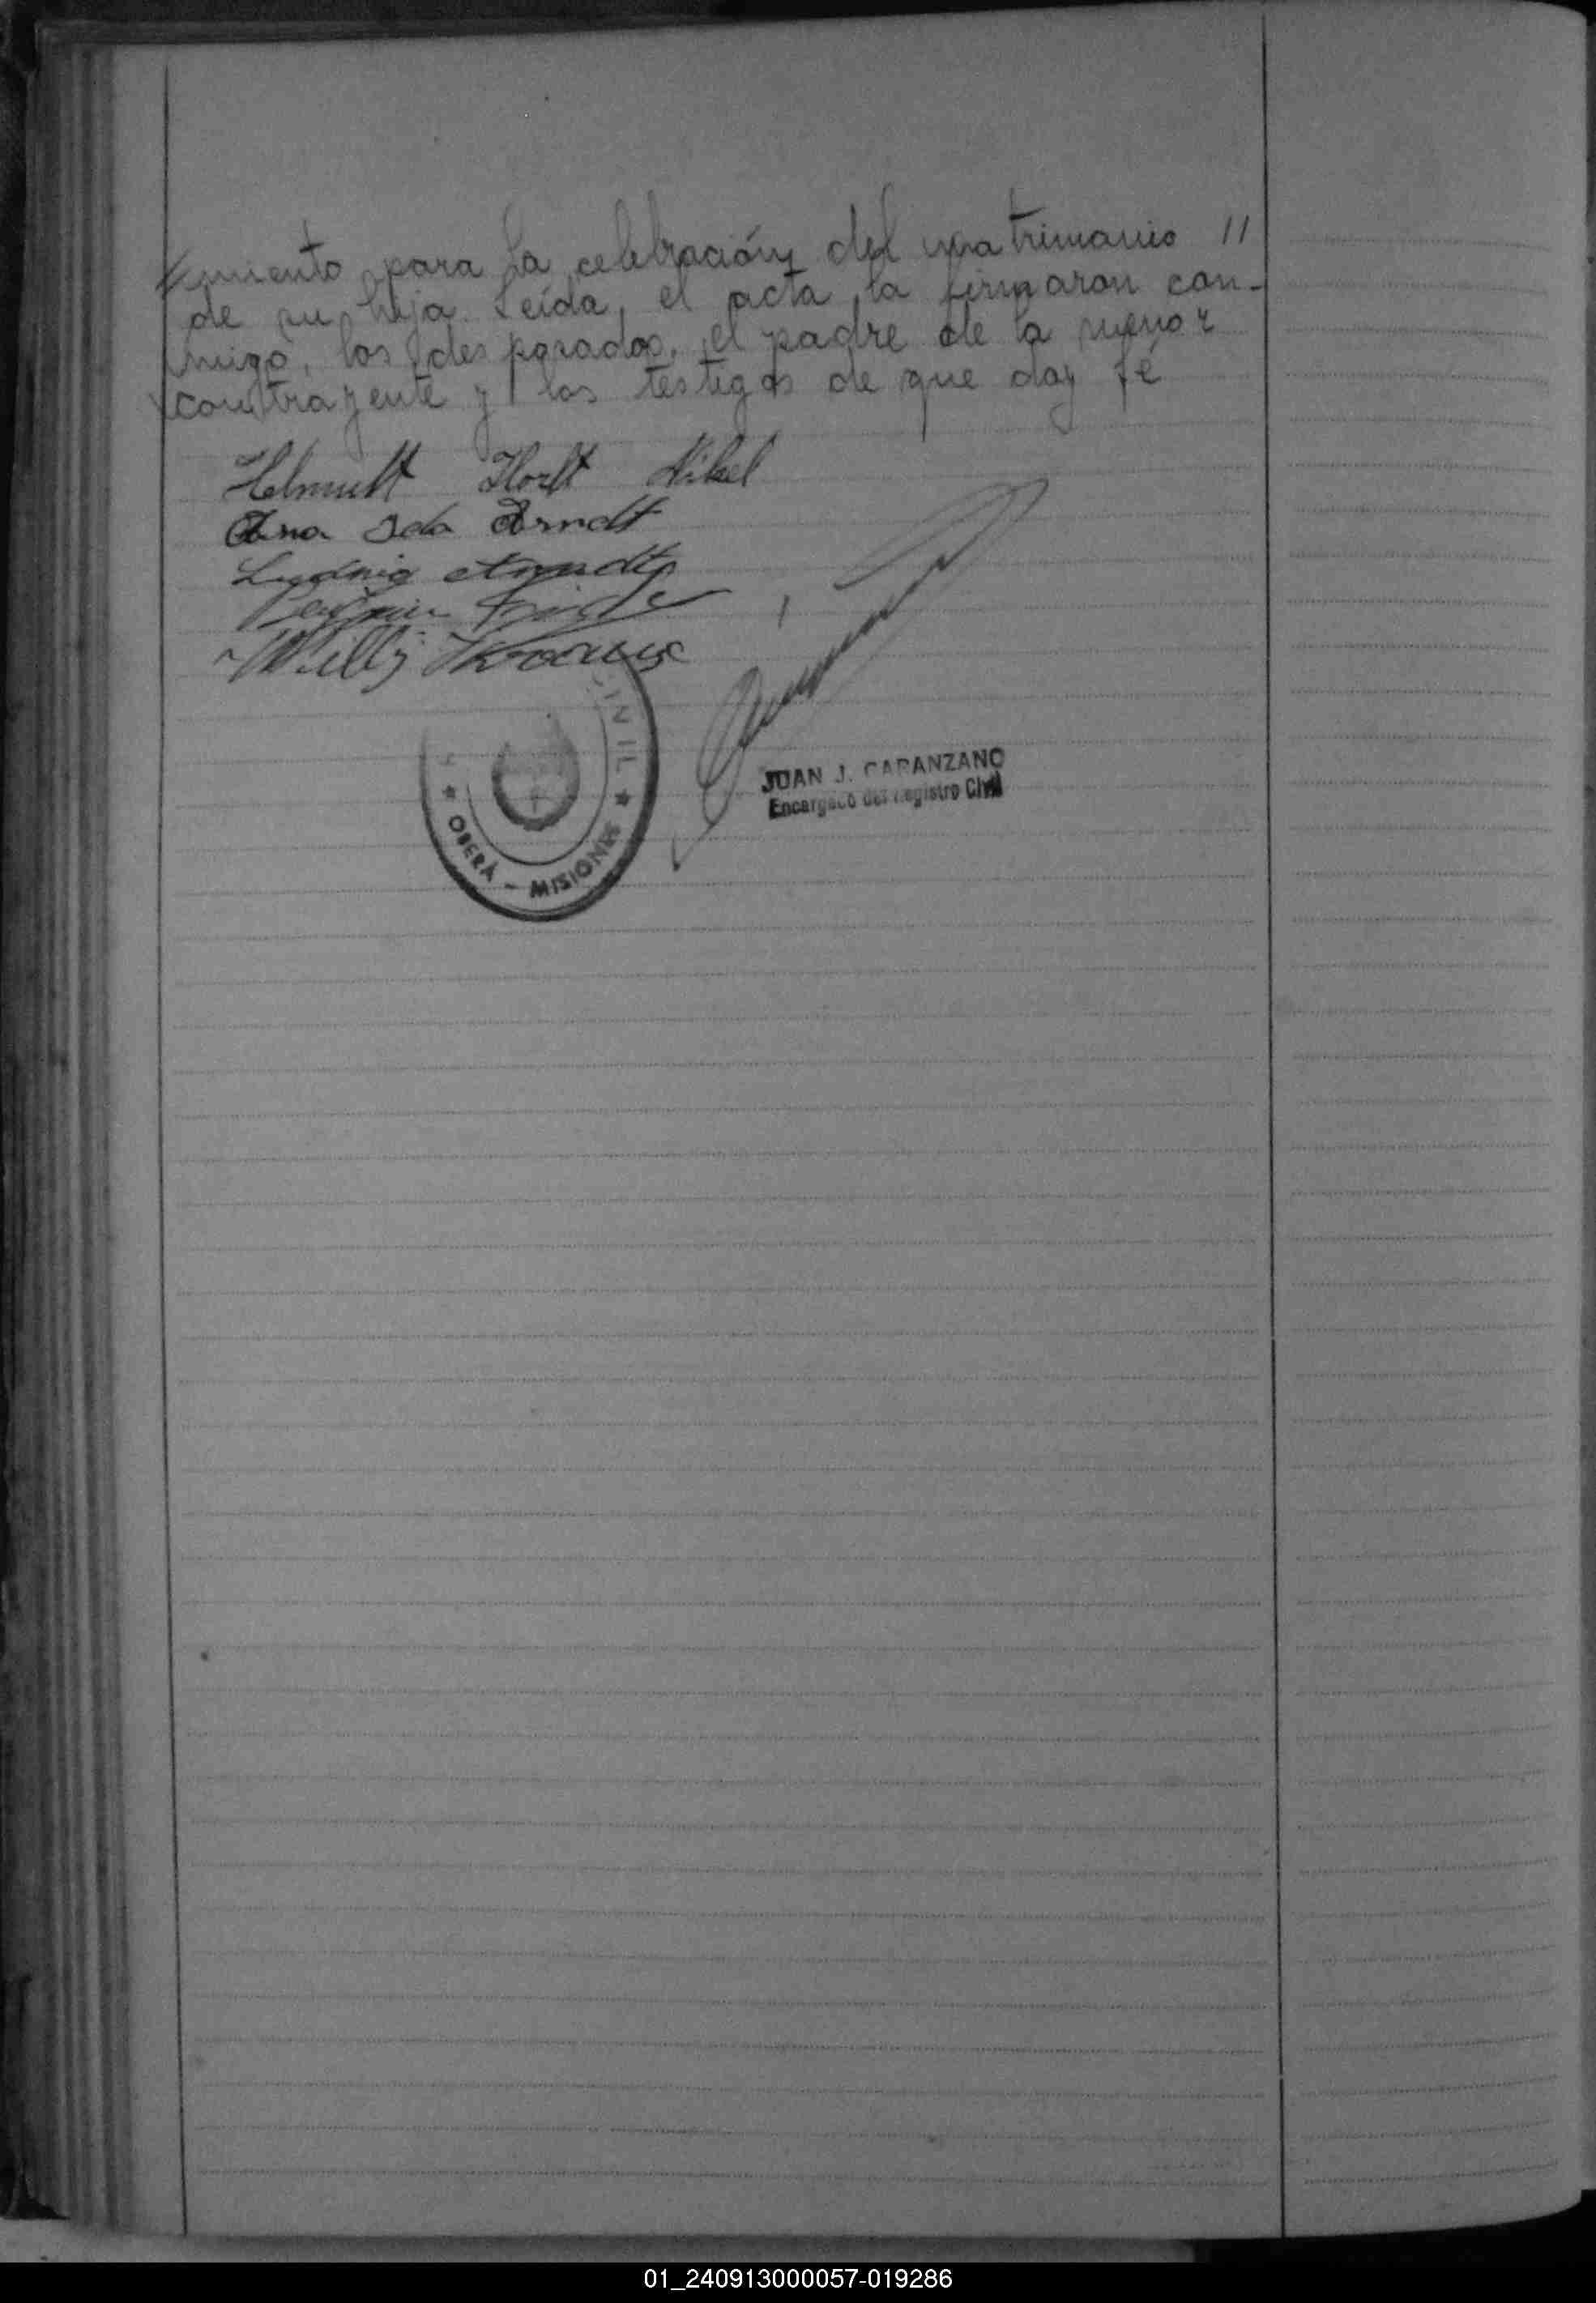 miento para la celebración del matrimonio //
de su hija. Leída, el acta, la firmaron con-
migo, los desposados, el padre de la menor
contrayente y los testigos de que doy fé
Helmutt Horst Nikel
Ana Ida Arndt
Ludwig Arndt
Willy
CIVIL
★ OBERÁ - MISIONES ★
JUAN J. CARANZANO
Encargado del Registro Civil
01_240913000057-019286